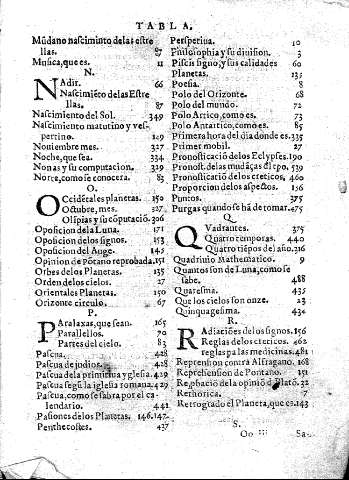 TABLA.
Mũdano nascimiento de las estre
llas. 87
Musica, que es. 11
N.
NAdir. 66
Nascimiẽto de las Estre
llas. 87
Nascimiento del Sol. 349
Nascimiento matutino y ves-
pertino. 149
Nouiembre mes. 327
Noche, que sea. 334
Nonas y su computacion. 329
Norte, como se conocera. 83
O.
OCcidẽtales planetas. 150
Octubre, mes. 327
Olĩpias y su cõputació. 306
Oposicion de la Luna. 171
Oposicion de los signos. 153
Oposicion del Auge. 145
Opinion de põtano reprobada. 151
Orbes de los Planetas. 135
Orden de los cielos. 27
Orientales Planetas. 150
Orizonte circulo. 67
P.
PAralaxas, que sean. 165
Parallelos. 70
Partes del cielo. 83
Pascua. 428
Pascua de judios. 428
Pascua de la primitiua yglesia. 429
Pascua segũ la iglesia romana. 429
Pascua, como se sabra por el ca-
lendario. 441
Pasiones de los Planetas. 146. 147.
Penthecostes. 437
Perspetiua. 10
Philosophia y su diuision. 3
Piscis signo, y sus calidades 60
Planetas. 135
Poesia. 8
Polo del Orizonte. 68
Polo del mundo. 72
Polo Artico, como es. 73
Polo Antartico, como es. 85
Primera hora del dia donde es. 335
Primer mobil. 27
Pronosticació de los Eclypses. 190
Pronost. de las mudãças dl tpo. 539
Pronosticació de los creticos. 460
Proporcion de los aspectos. 156
Puntos. 375
Purgas quando se hã de tomar. 475
Q.
QVadrantes. 375
Quatro temporas. 440
Quatro tiẽpos del año. 316
Quadriuio Mathematico. 9
Quantos son de Luna, como se
sabe. 488
Quaresma. 435
Que los cielos son onze. 23
Quinquagesima. 434
R.
RAdiaciões de los signos. 156
Reglas de los creticos. 462
reglas pa las medicinas. 481
Reprension contra Alfragano. 168
Reprehension de Pontano. 151
Reprobació de la opinió d̃ Platõ. 32
Rethorica. 7
Retrogrado el Planeta, que es. 143
S.
Oo iiij Sa-